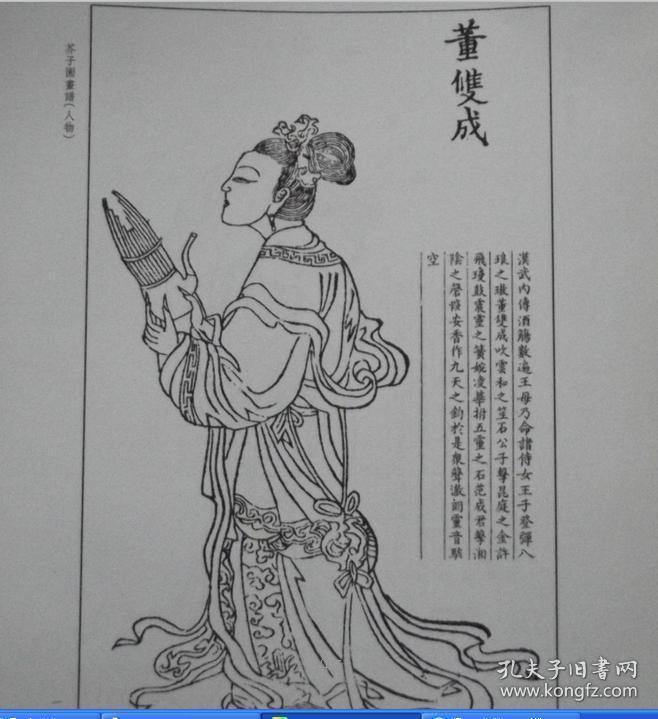 董雙成
漢武內傳酒觴數遍王母乃命諸侍女王子登彈八
琅之璈董雙成吹雲和之笙石公子擊昆庭之金許
飛瓊鼓震靈之簧婉凌華拊五靈之石范成君擊湘
陰之磬段安香作九天之鈞於是衆聲澈朗靈音駭
空
芥子園畫譜(人物)
孔夫子旧書网
www.kongfz.com